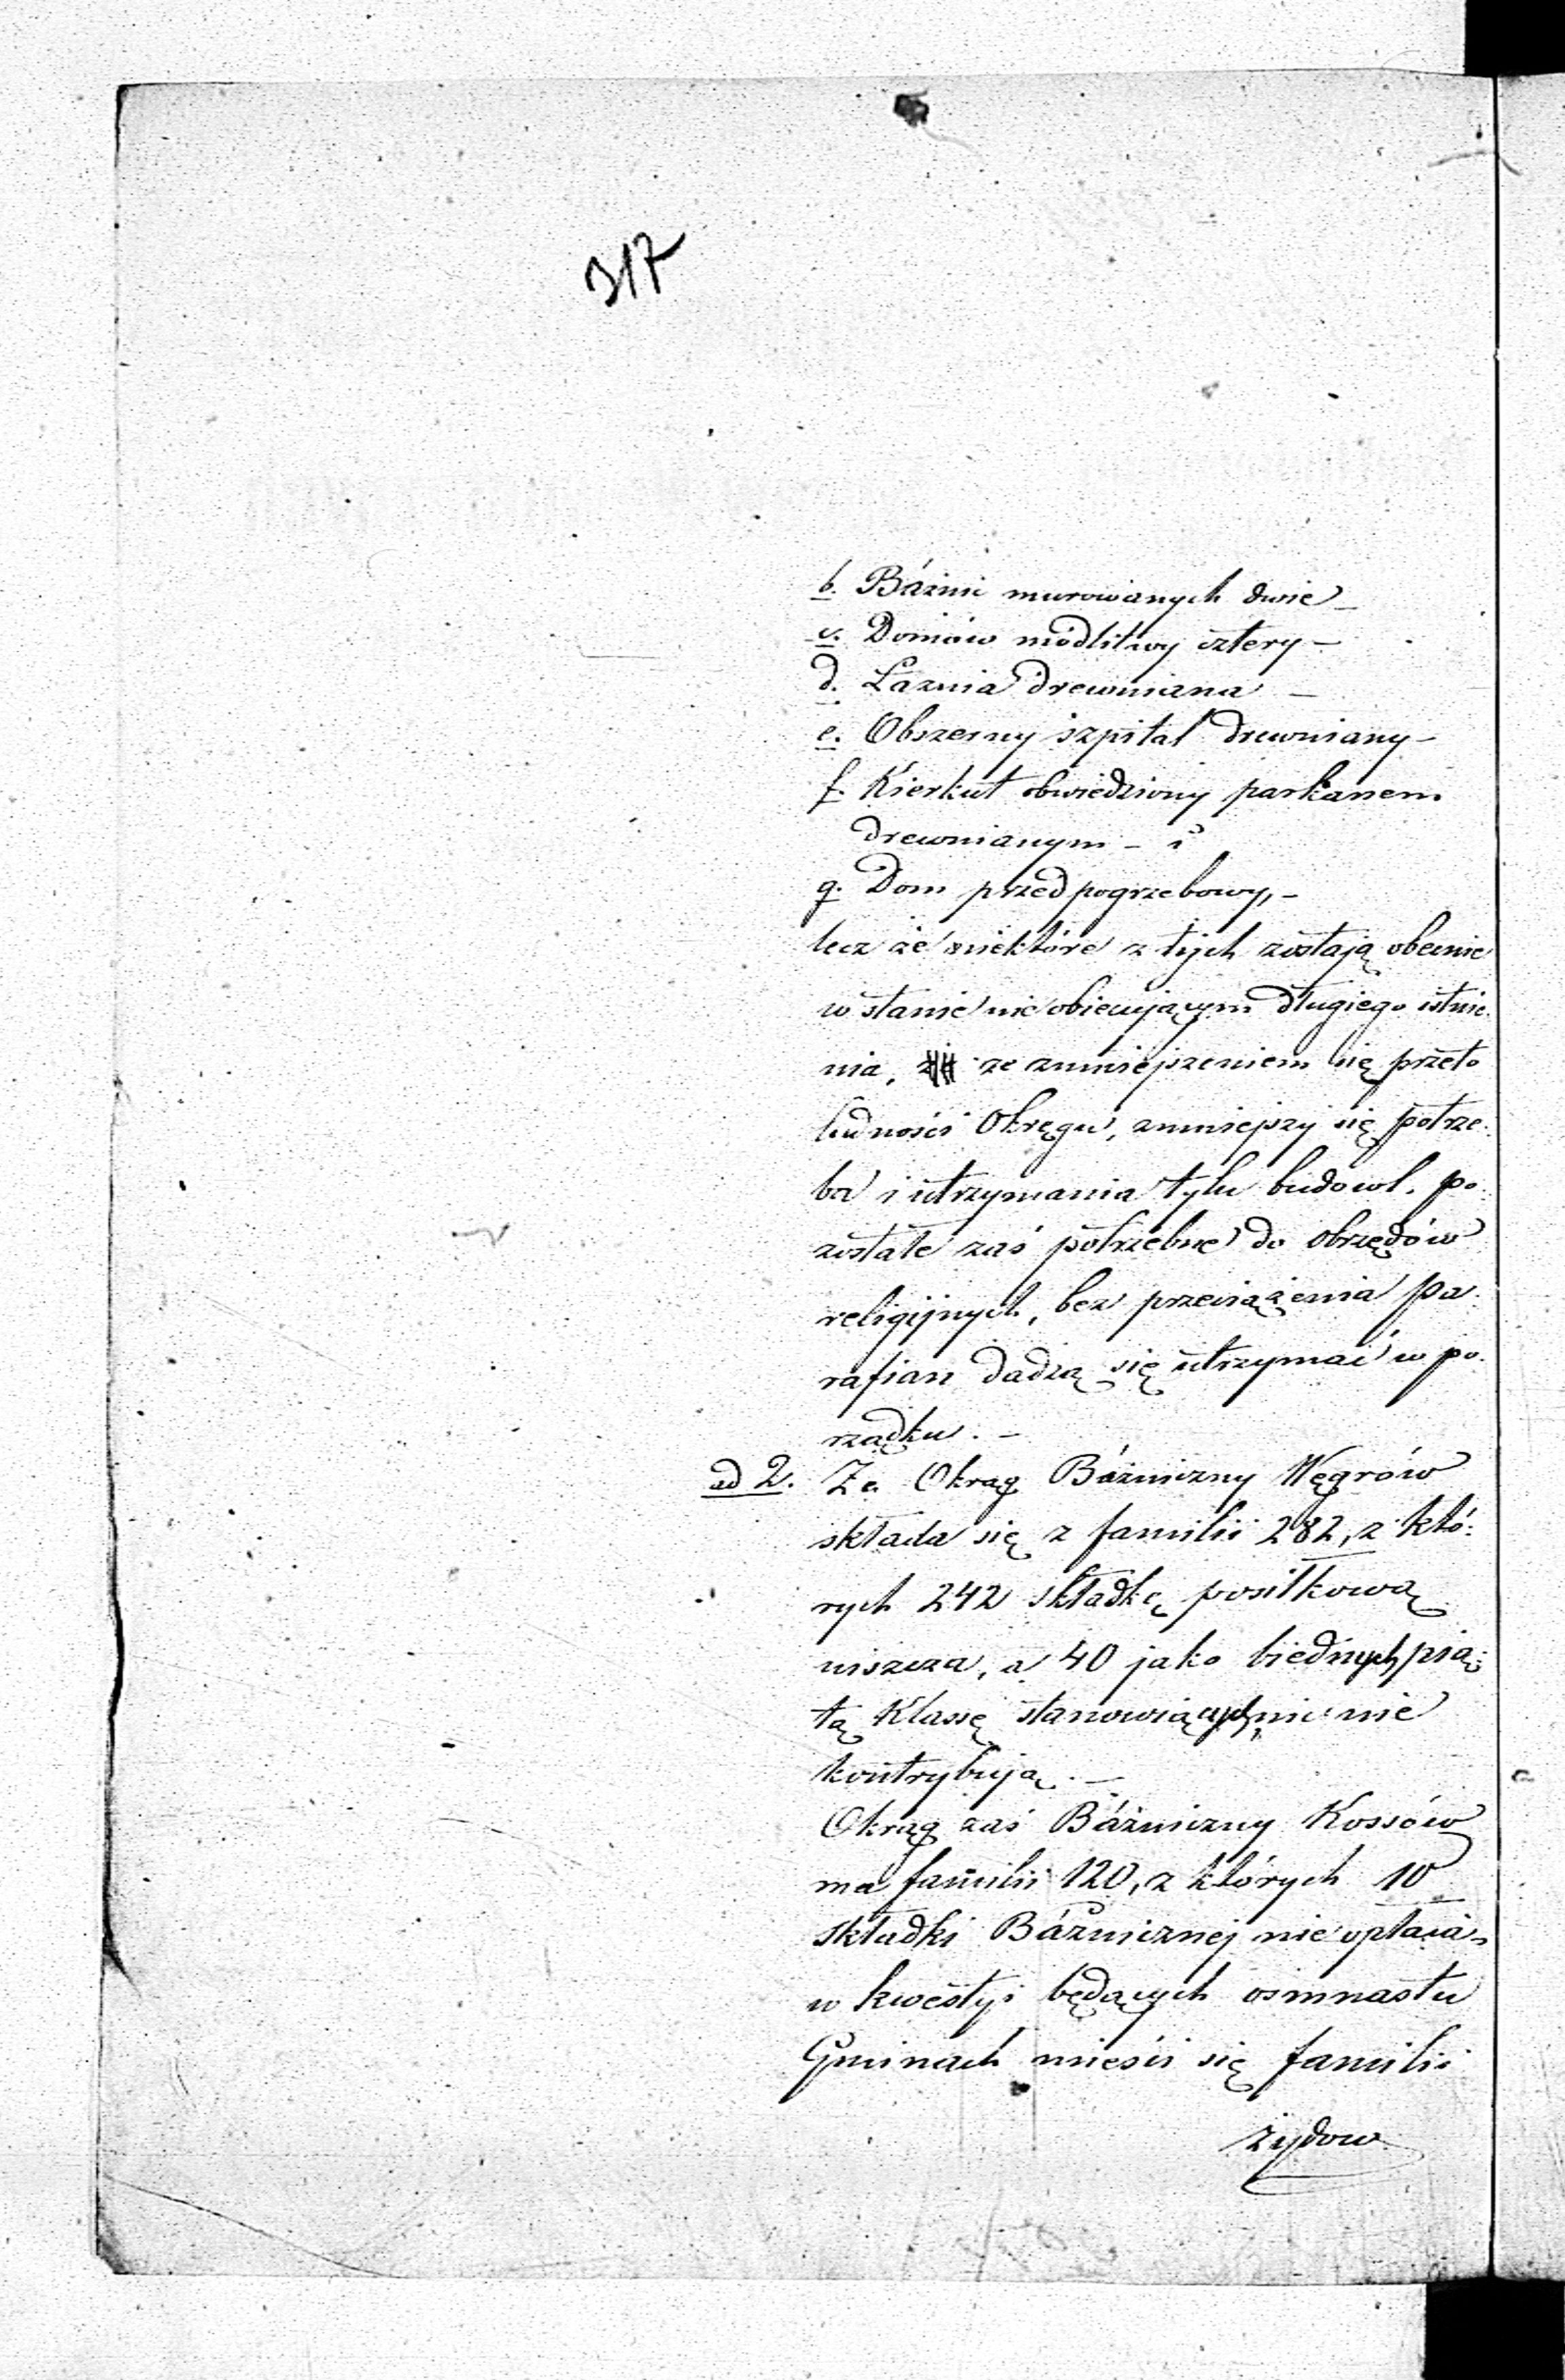 317
b. Bóżnic murowanych dwie –
c. Domów modlitwy cztery –
d. Łaznia drewniana –
e. Obszerny szpital drewniany –
f. Kierkut obwiedziony parkanem
drewnianym – i
g. Dom przedpogrzebowy, –
lecz że niektóre z tych zostają obecnie
w stanie nie obiecującym długiego istnie
nia, ze zmniejszeniem się przeto
ludności Okręgu, zmniejszy się potrze:
ba i utrzymania tylu budowl. po:
zostałe zaś potrzebne do obrzędów
religijnych, bez przeciążenia pa
rafian dadzą się utrzymać w po.
rządku. –
ad 2. Ze Okrąg Bóżniczny Węgrów
składa się z familii 282, z któ:
rych 242 składkę posiłkową
uiszcza, a 40 jako biednych pią:
tą Klassę stanowiących, nic nie
kontrybują. –
Okrąg zaś Bóżniczny Kossów
ma familii 120, z których 10
składki Bóżnicznej nie opłaca –
w kwestyi będących osmnastu
Gminach mieści się familii
żydow